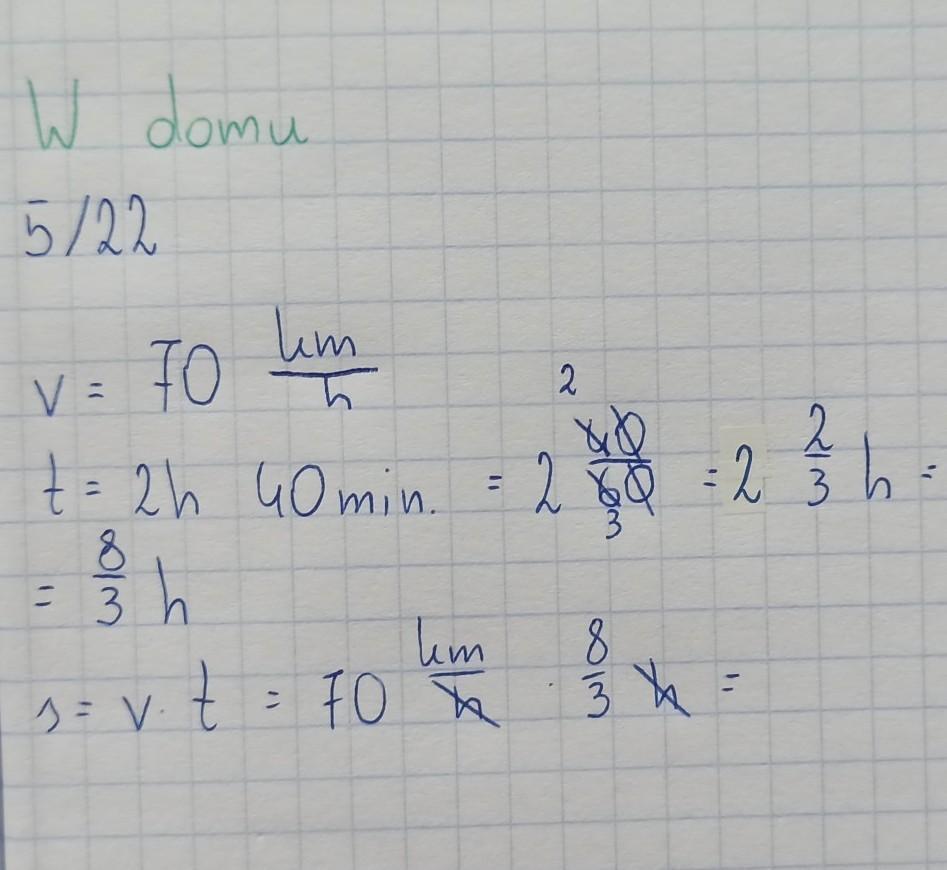 W domu
5/22
v = 70 km/h
t = 2h 40 min. = 2 40/60 2 3 = 2 2/3 h =
= 8/3 h
s = v · t = 70 km/h · 8/3 h =